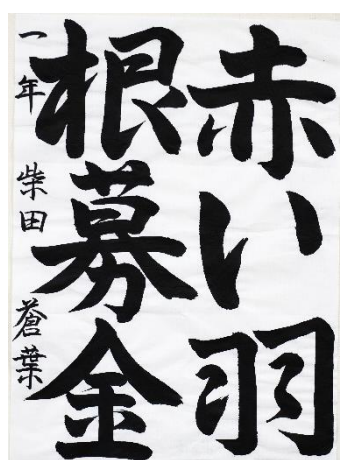 赤い羽
根募金
一年 柴田 蒼葉